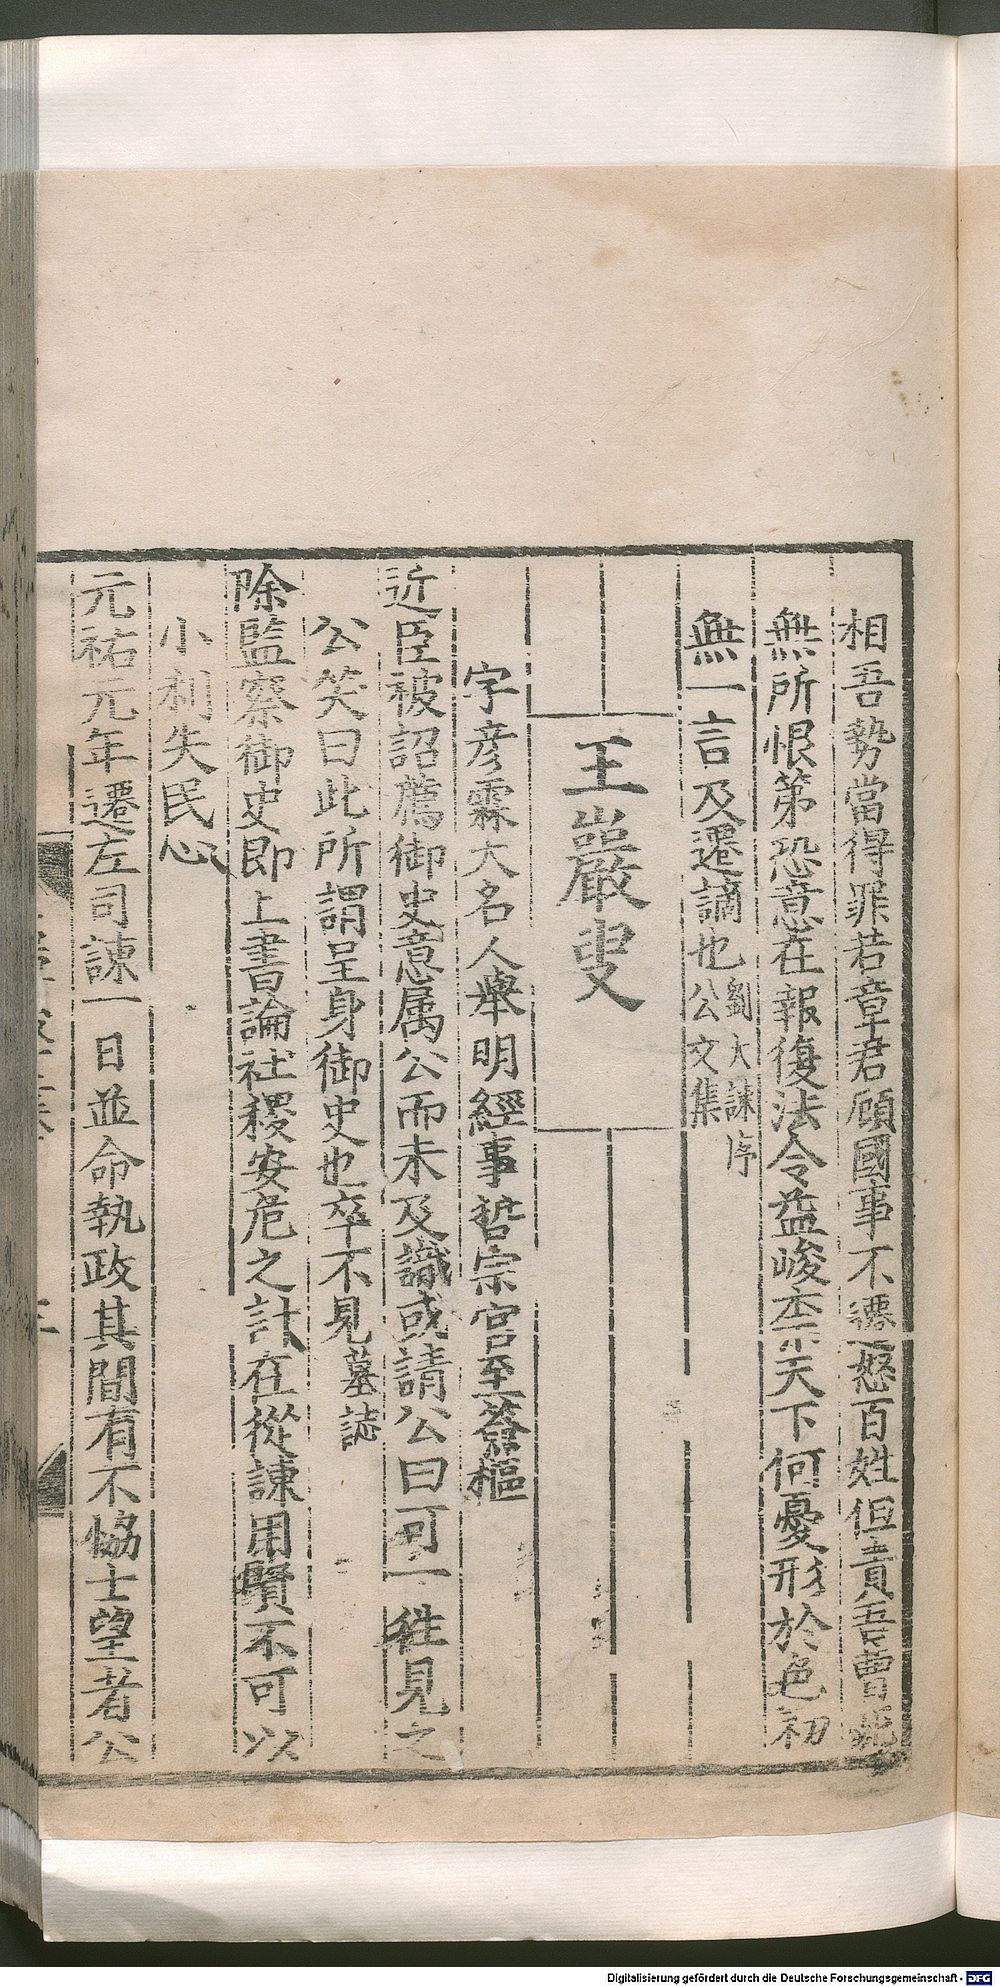 相吾勢當得罪若章君顧國事不遷怒百姓但責吾曹死
無所恨第恐意在報復法令益峻柰天下何憂形於色初
無一言及遷謫也
劉大諫序
公文集
王巖叟
字彦霖大名人舉明經事哲宗官至簽樞
近臣被詔薦御史意属公而未及識或請公曰可一徃見之
公笑曰此所謂呈身御史也卒不見墓誌
除監察御史即上書論社稷安危之計在從諫用賢不可以
小利失民心
元祐元年遷左司諫一日並命執政其間有不恊士望者公
Digitalisierung gefördert durch die Deutsche Forschungsgemeinschaft - DFG